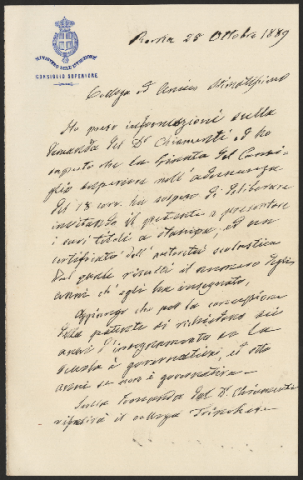 Roma 28 Ottobre 1889
MINISTERO DELL'ISTRUZIONE
CONSIGLIO SUPERIORE
Collega ed Amico Stimatissimo
Ho preso informazioni sulla
domanda del Dr Chiamenti, ed ho
saputo che la Giunta del Consi-
glio superiore nell'adunanza
del 18 corr. ha sospeso di deliberare
invitando il petente a presentare
i suoi titoli a stampa, ed un
certificato dell'autorità scolastica
dal quale risulti il numero degli
anni ch'egli ha insegnato.
Aggiungo che per la concessione
della patente si richiedono sei
anni d'insegnamento se la
scuola è governativa, ed otto
anni se non è governativa.
Sulla domanda del Dr Chiamenti
riferirà il collega